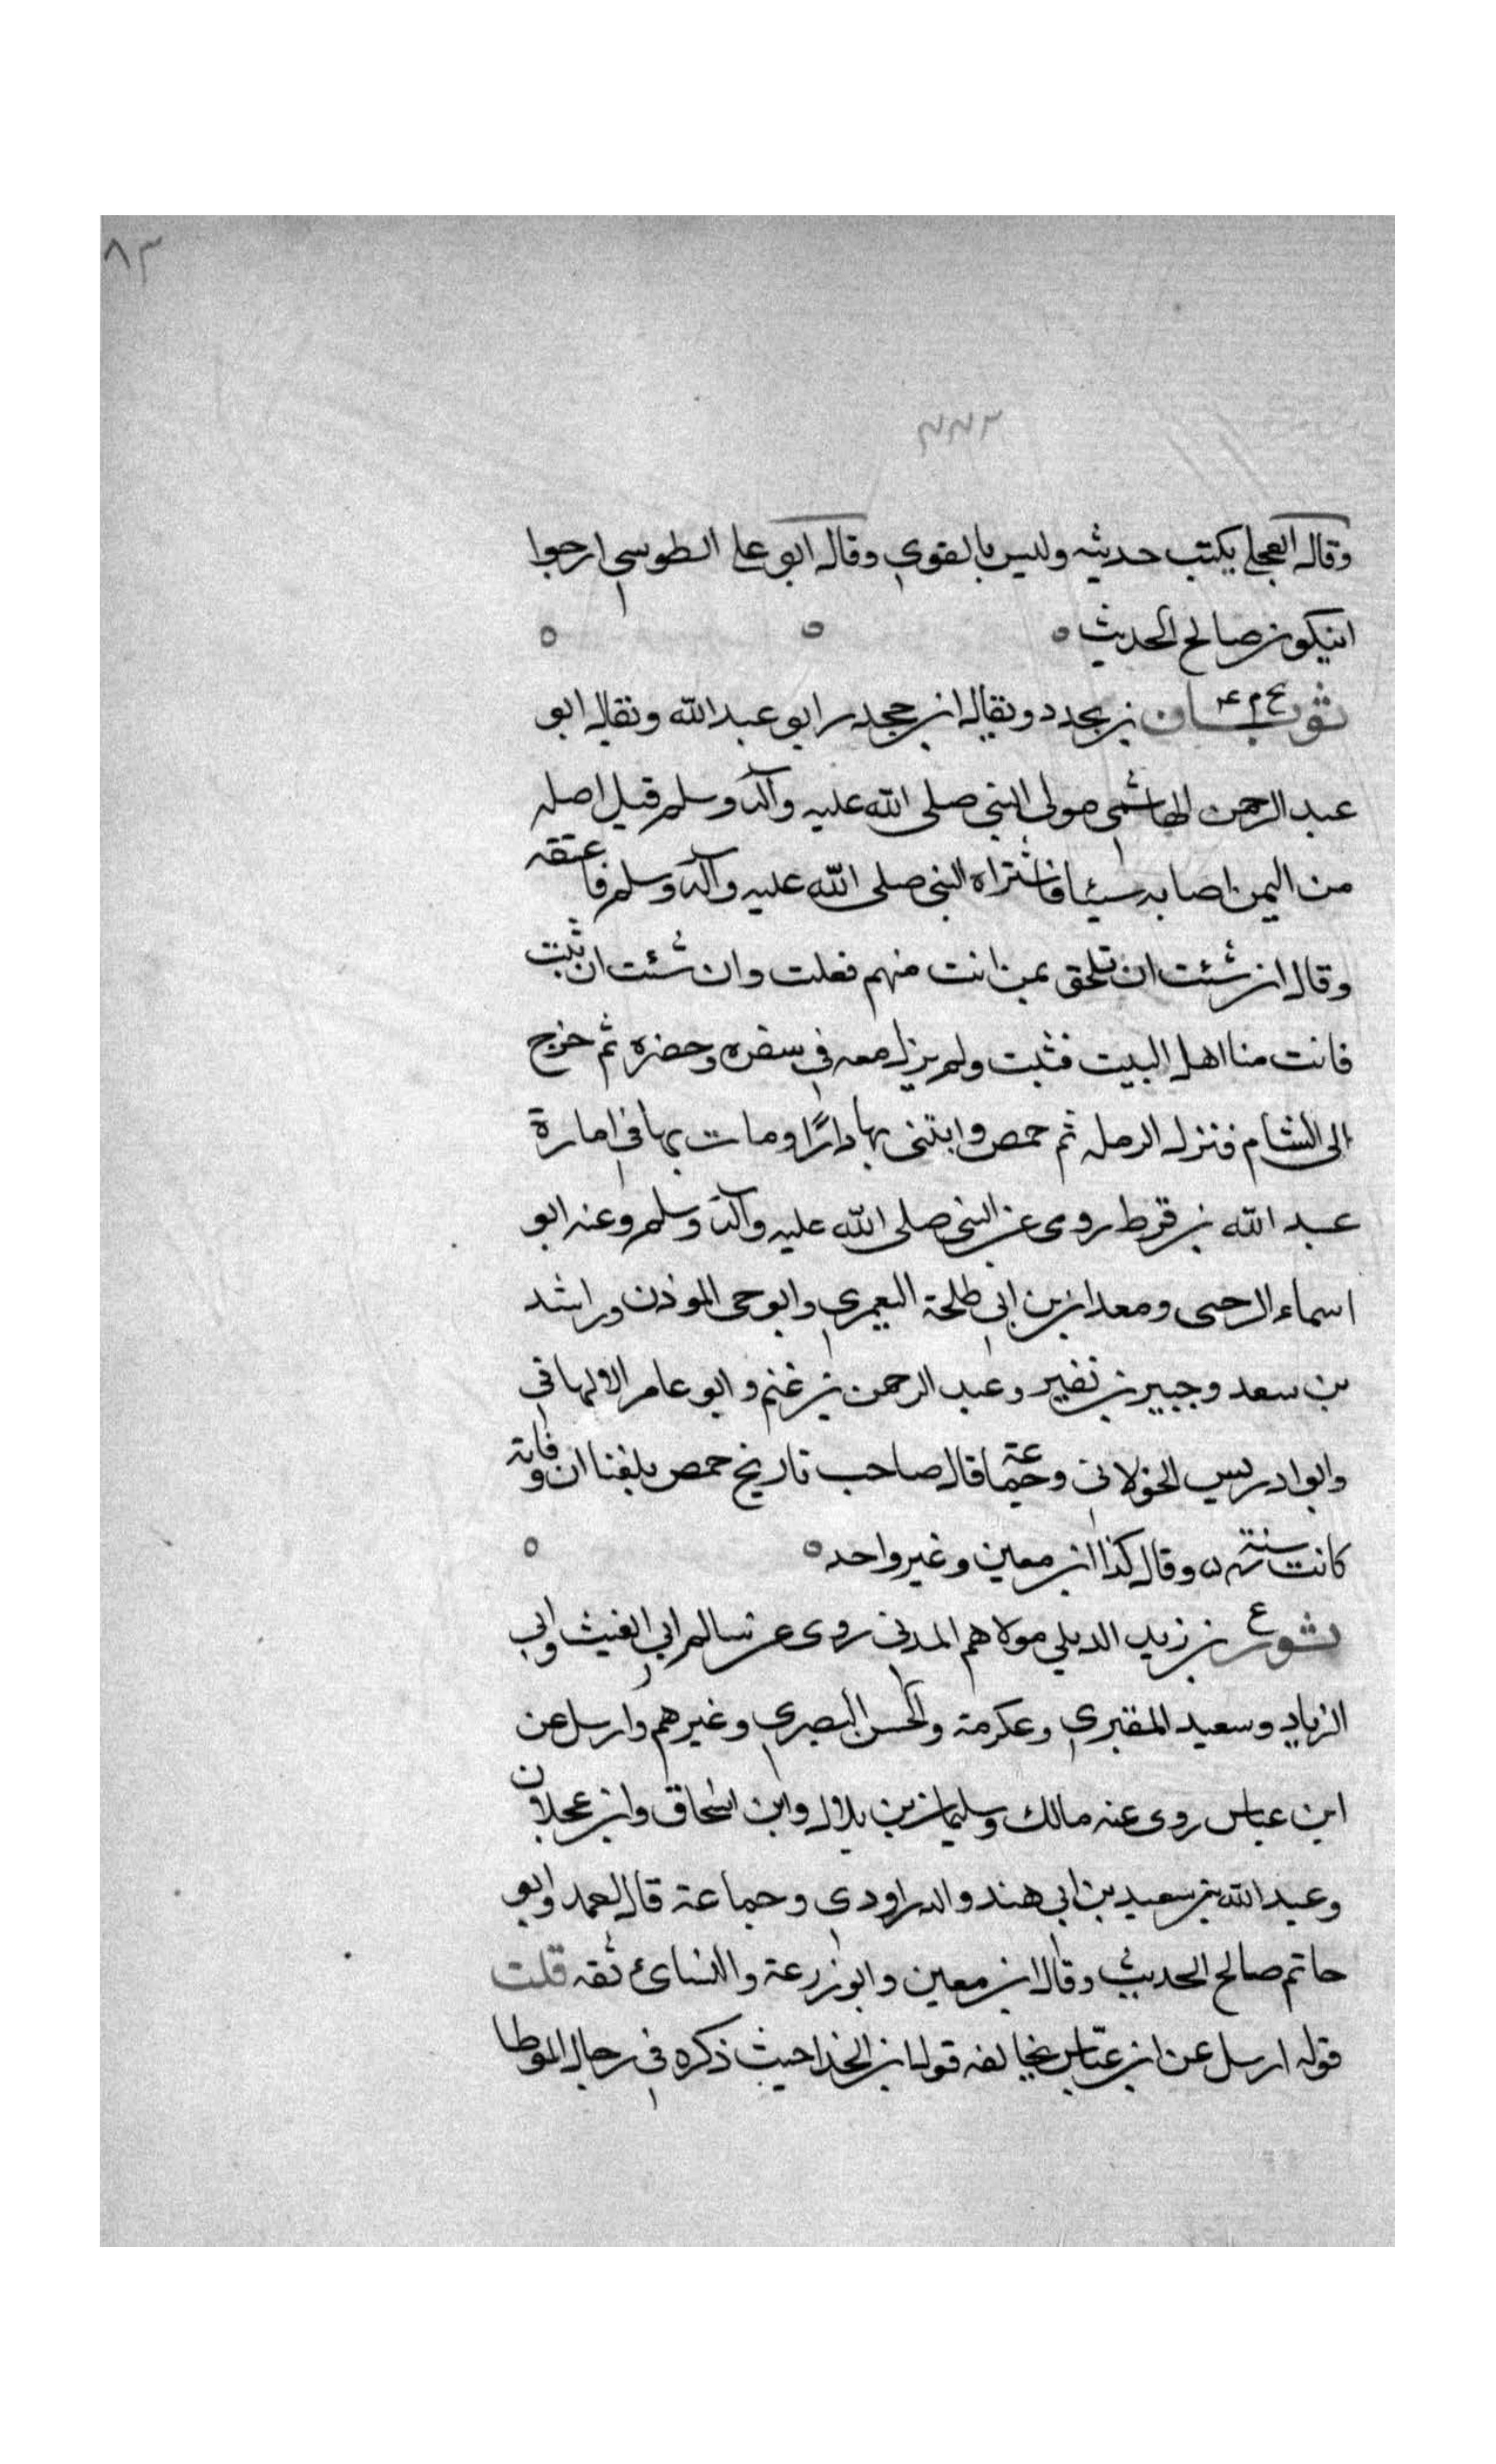 ٨٣
٢٢٣
وقال العجلي يكتب حديثه وليس بالقوي وقال ابو علي الطوسي ارجوا
ان يكون صالح الحديث ه
ثوبان بن بجدد ويقال ابن جحدر ابو عبد الله ويقال ابو
عبد الرحمن الهاشمي مولى النبي صلى الله عليه وآله وسلم قيل اصله
من اليمن اصابه سبيا فاشتراه النبي صلى الله عليه وآله وسلم فاعتقه
وقال ان شئت ان تلحق بمن انت منهم فعلت وان شئت ان تثبت
فانت منا اهل البيت فثبت ولم يزل معه في سفره وحضره ثم خرج
الى الشام فنزل الرمله ثم حمص وابتنى بها دارًا ومات بها في امارة
عبد الله بن قرط روى عن النبي صلى الله عليه وآله وسلم وعنه ابو
اسماء الرحبى ومعدان بن ابي طلحة اليعمري وابو حى الموذن وراشد
بن سعد وجبير بن نفير وعبد الرحمن بن غنم وابو عامر الالهاني
وابو ادريس الخولاني وجماعة قال صاحب تاريخ حمص بلغنا ان وفاته
كانت سنة وقال كذا ابن معين وغير واحد ه
ثور بن زيد الديلي مولاهم المدني روى عن سالم ابي الغيث وابي
الزناد وسعيد المقبري وعكرمة والحسن البصري وغيرهم وارسل عن
ابن عباس روى عنه مالك وسليمان بن بلال وابن اسحاق وابن عجلان
وعبد الله بن سعيد بن ابي هند والدراوردي وجماعة قال احمد وابو
حاتم صالح الحديث وقال ابن معين وابو زرعة والنسائئ ثقه قلت
قوله ارسل عن ابن عباس يخالفه قول ابن الحذا حيث ذكره في رجال الموطا